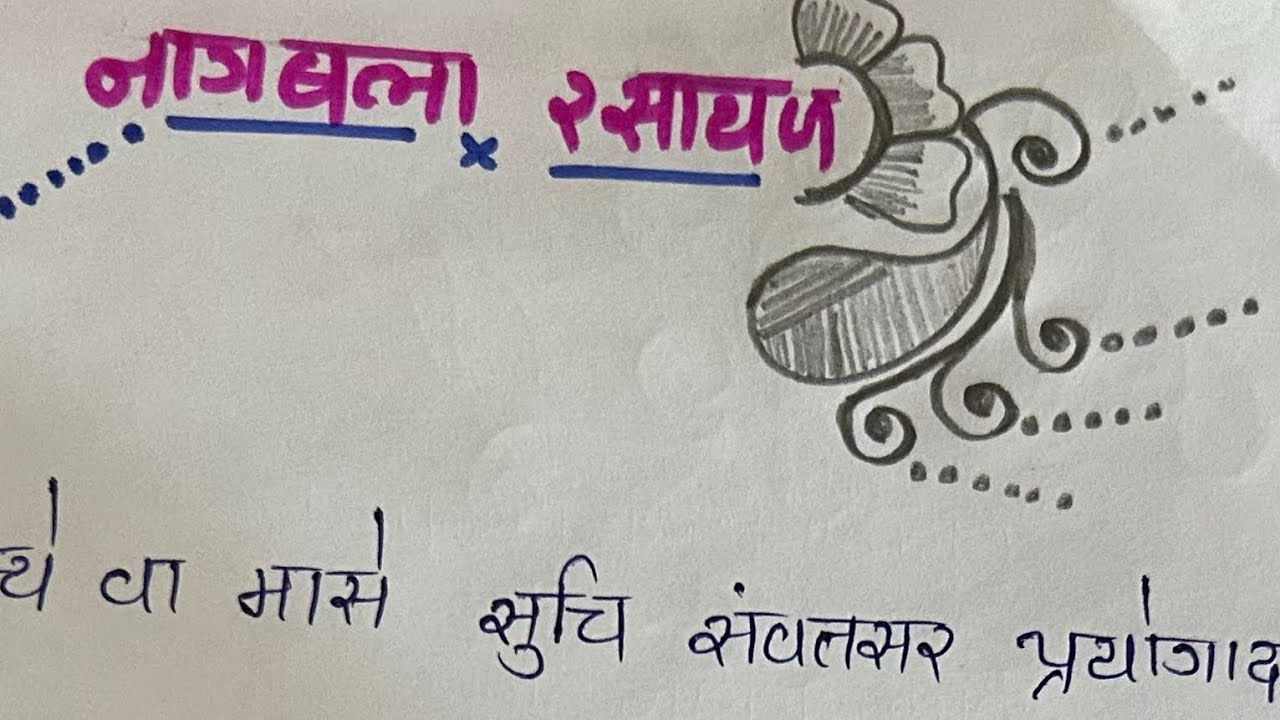 नागबला रसायन
ये वा मासे सुचि संवत्सर प्रयोगाद